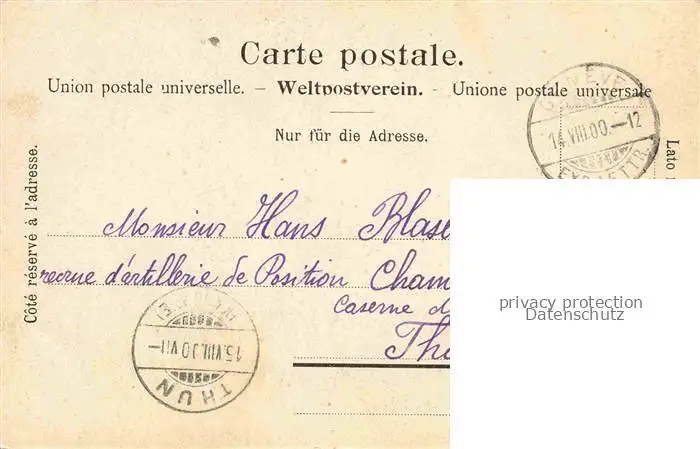 Carte postale.
Union postale universelle. – Weltpostverein. - Unione postale universale
Nur für die Adresse.
Côté réservé à l'adresse.
Lato
GENÈVE
14.VIII.00.–12
EXP. LETTR.
Monsieur Hans Blase
recrue d'artillerie de Position Cham
Caserne d
Th
15.VIII.00.VII–
THUN
privacy protection
Datenschutz